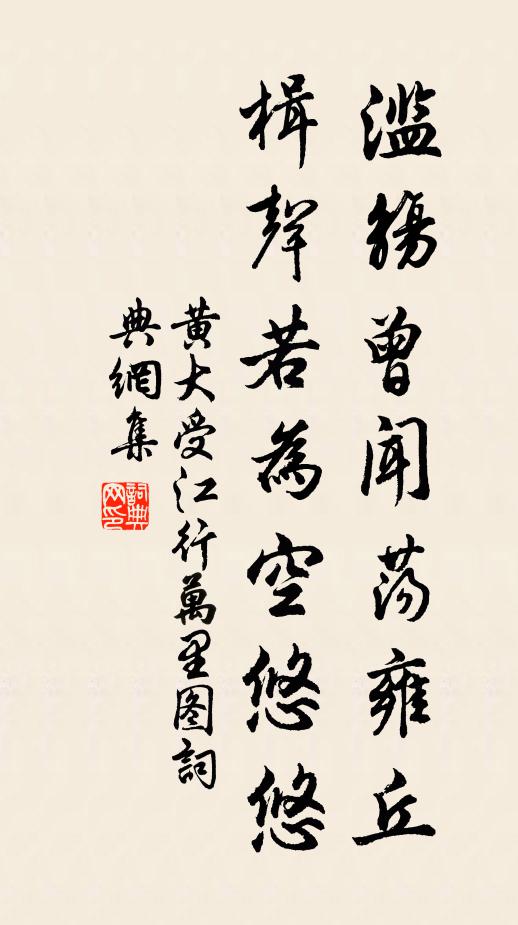 濫觴曾聞荡雍丘
楫聲若為空悠悠
黃大受江行萬里图詞
典網集
詞典
网印